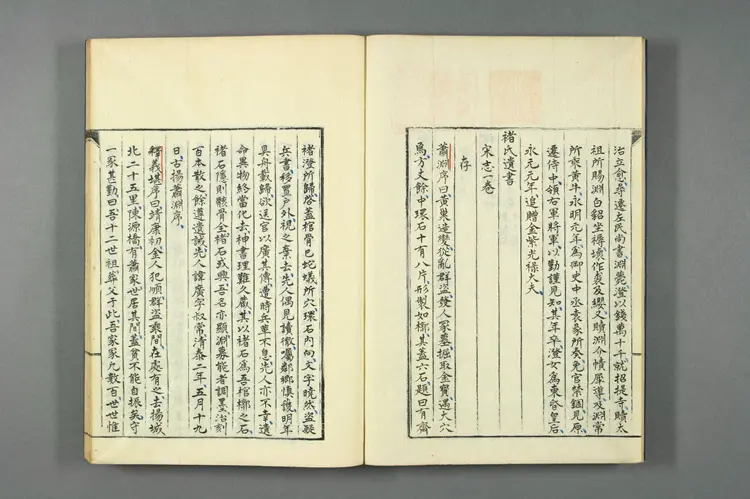 治立愈尋遷左民尚書淵薨澄以錢萬一千就招提寺贖太
祖所賜淵白貂坐褥壞作裘及纓又贖淵介幘犀導及淵常
所乘黄牛永明元年為御史中丞袁彖所奏免官禁錮見原
遷侍中領右軍將軍以勤謹見知其年卒澄女為東昏皇后
永元元年追贈金紫光祿大夫
褚氏遺書
宋志一卷
存
蕭淵序曰黄巢造變從亂群盜發人冢墓掘取金寶遇大穴
焉方丈餘中環石十有八片形製如槨其蓋六石題曰有齊
褚澄所歸啓蓋棺骨已蛇蟻所穴環石内向文字曉然盜疑
兵書移置户外視之棄去先人偶見讀徹囑鄰鄉慎護明年
具舟載歸欲送官以廣其傳遭時兵革不息先人亦不幸遺
命異物終當化去神書理難久藏其以褚石為吾棺槨之石
褚石隱則骸骨全褚石或興吾名亦顯淵募能者調墨治刻
百本散之餘遵遺誡先人諱廣字叔常清泰二年五月十九
日古揚蕭淵序
釋義堪序曰靖康初金人犯順群盜乘間在處有之去揚城
北二十五里陳源橋有蕭家世居其間蓋貧不能自振矣守
一冢甚勤曰吾十二世祖葬父于此吾家冢凡數百世世惟